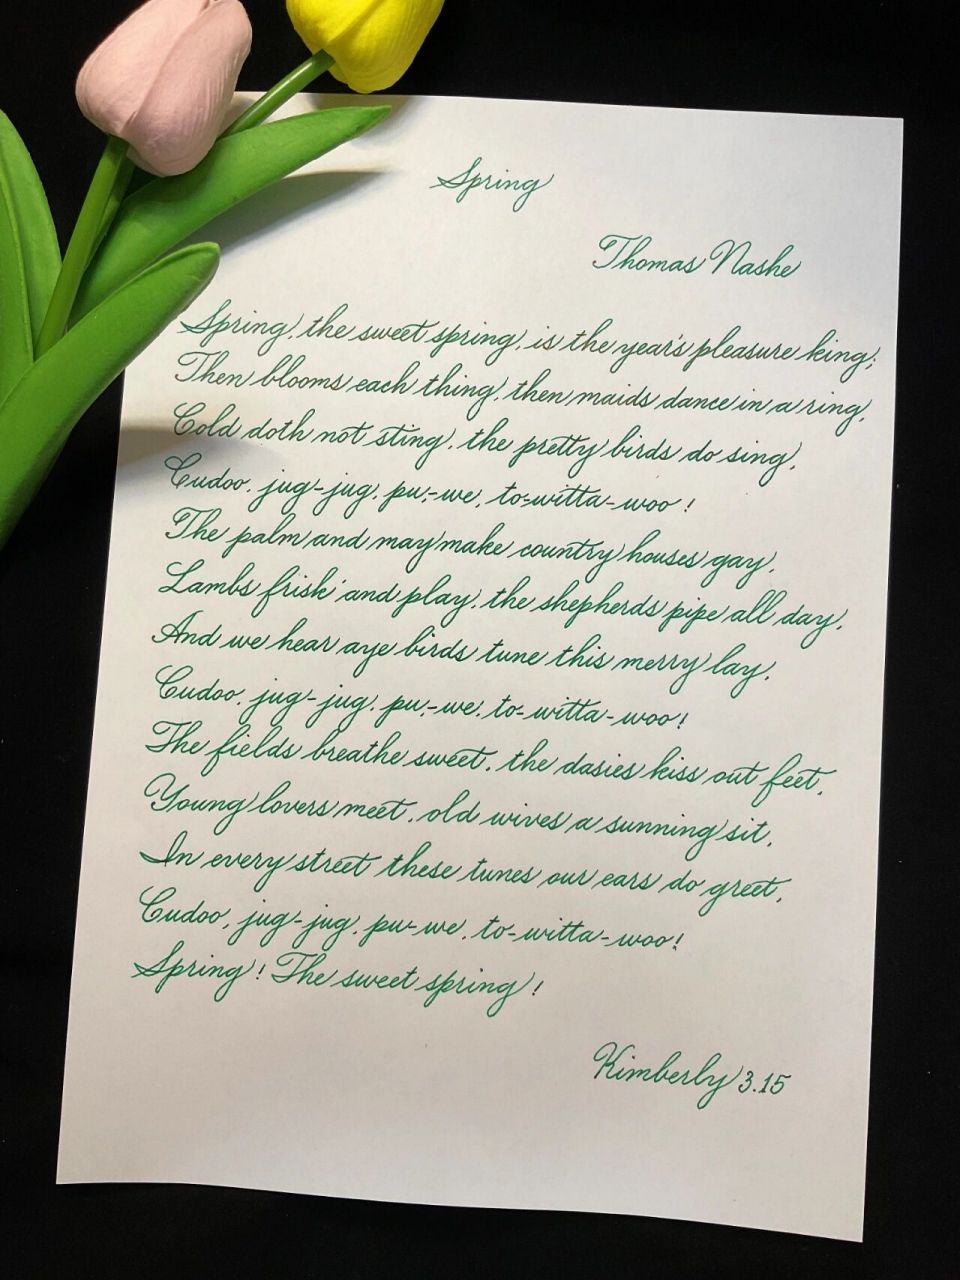 Spring
Thomas Nashe
Spring, the sweet spring, is the year's pleasure king;
Then blooms each thing, then maids dance in a ring,
Cold doth not sting, the pretty birds do sing,
Cudoo, jug-jug, pu-we, to-witta-woo!
The palm and may make country houses gay,
Lambs frisk and play, the shepherds pipe all day,
And we hear aye birds tune this merry lay,
Cudoo, jug-jug, pu-we, to-witta-woo!
The fields breathe sweet, the dasies kiss out feet,
Young lovers meet, old wives a sunning sit,
In every street these tunes our ears do greet,
Cudoo, jug-jug, pu-we, to-witta-woo!
Spring! The sweet spring!
Kimberly 3.15